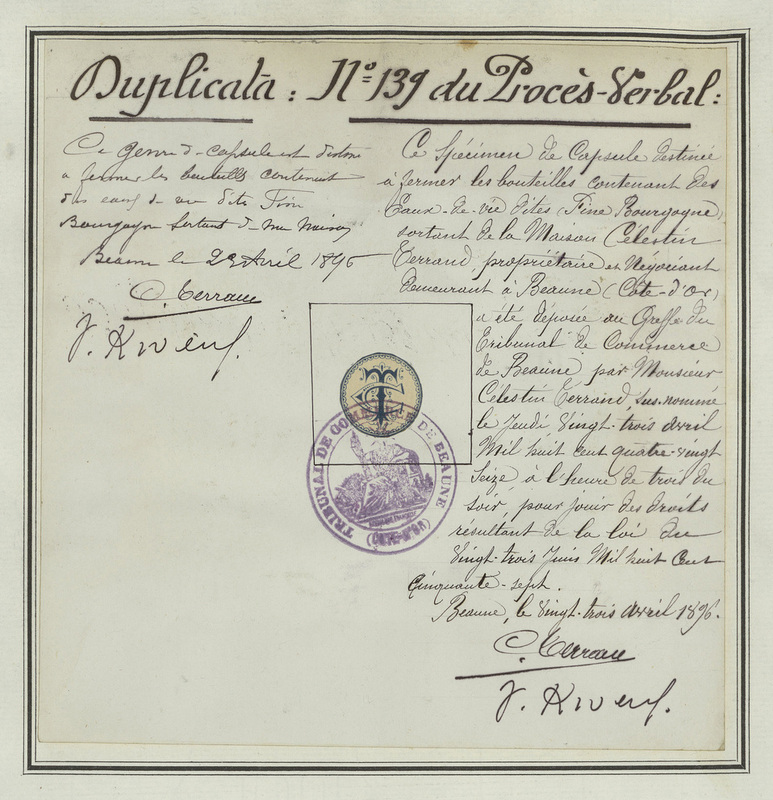 Duplicata : N° 139 du Procès-Verbal :
Ce genre de capsule est destiné
à fermer les bouteilles contenant
des eaux de vie dites Fine
Bourgogne sortant de ma maison
Beaune le 23 Avril 1896
C. Terrand
Ce Spécimen de Capsule destinée
à fermer les bouteilles contenant des
Eaux-de-vie dites (Fine Bourgogne)
sortant de la Maison Célestin
Terrand, propriétaire et Négociant
demeurant à Beaune (Côte-d'Or)
a été déposée au Greffe du
Tribunal de Commerce
de Beaune par Monsieur
Célestin Terrand, sus-nommé
le Jeudi Vingt-trois avril
Mil huit cent quatre-vingt
Seize, à l'heure de trois du
soir, pour jouir des droits
résultant de la loi du
Vingt-trois Juin Mil huit Cent
Cinquante-sept.
Beaune, le Vingt-trois avril 1896.
C. Terrand
TRIBUNAL DE COMMERCE DE BEAUNE
(CÔTE-D'OR)